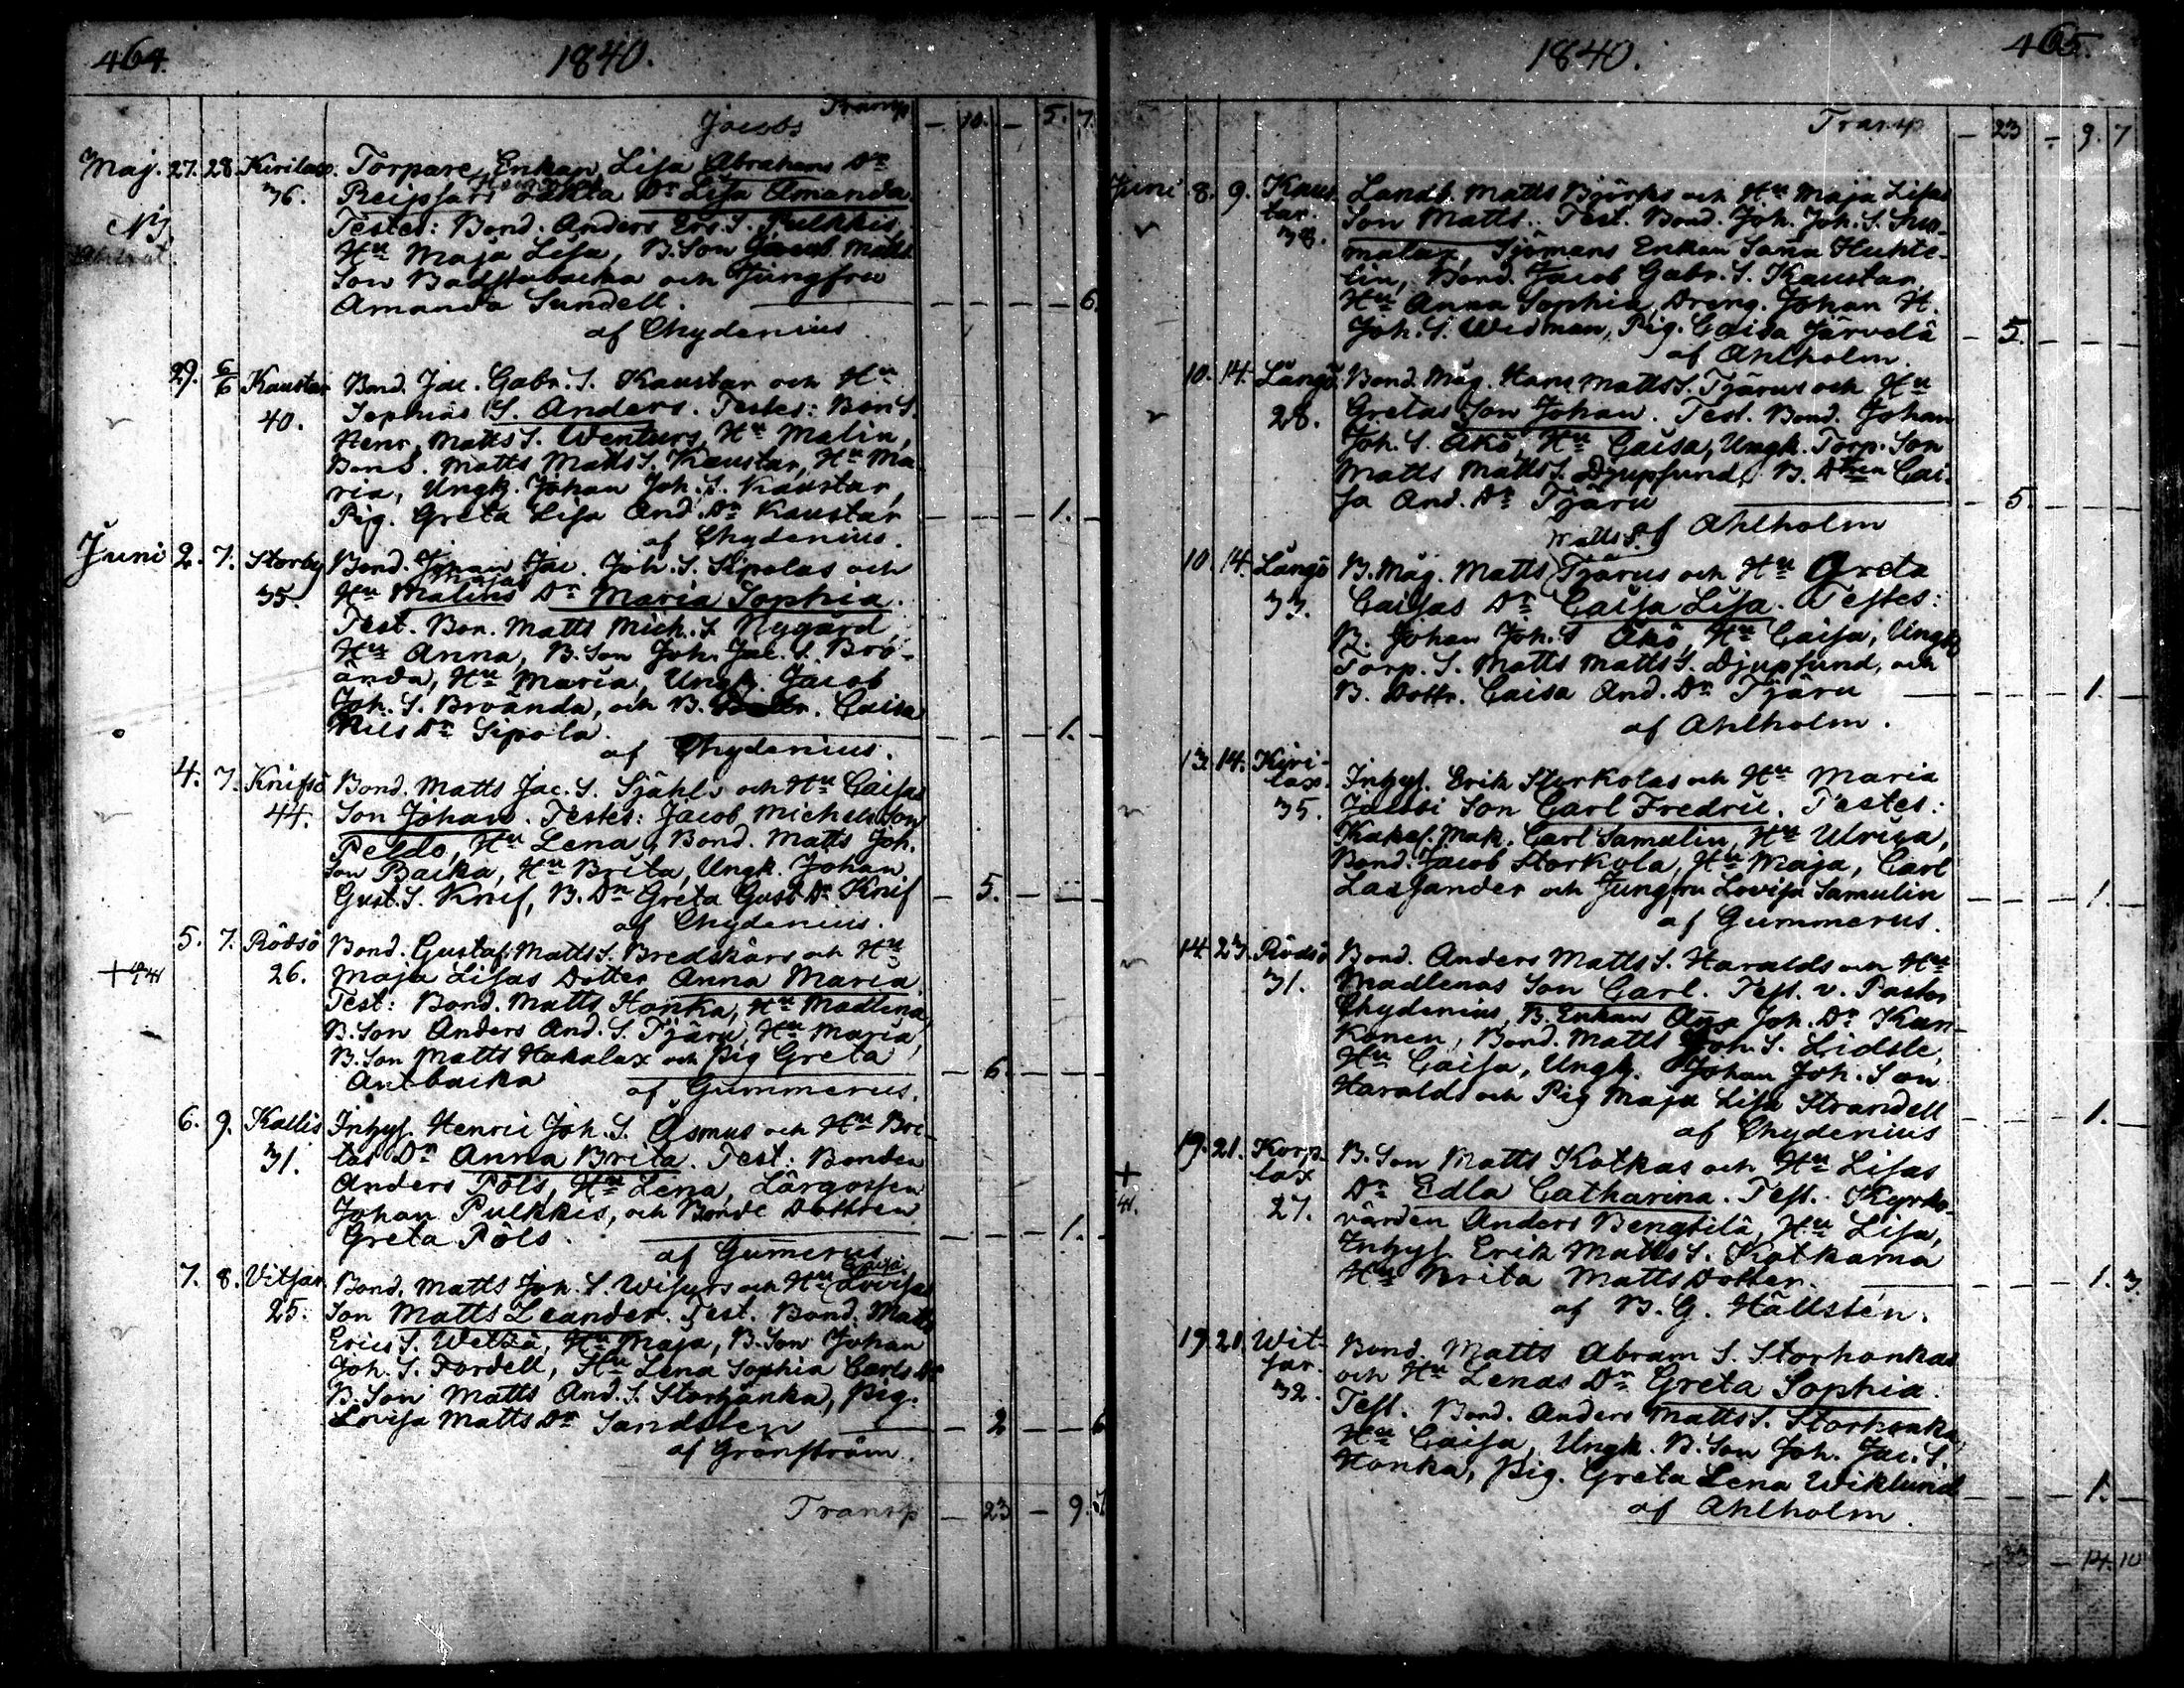 464. 1840.
Transp — 10. — 5. 7.
Jacobs
Maj. 27. 28. Kirilax. Torpare Enkan Lisa Abrahams Dr
36. Reipsars Dr Lisa Amanda.
Testes: Bond. Anders Ers. S. Pulkkis,
Hu Maja Lisa, B. Son Jacob Matts
Son Badstubacka och Jungfru
Amanda Sundell. — — — — 6.
af Chydenius
29. 6/6 Kaustar Bond. Jac. Gabr. S. Kaustar och Hu
40. Sophias S. Anders. Testes: Bon S.
Henr. Matts S. Wenturs, Hu Malin,
Bon S. Matts Matts S. Kaustar, Hu Ma
ria, Ungk. Johan Joh. S. Kaustar,
Pig. Greta Lisa And. Dr Kaustar — — — 1. —
af Chydenius.
Juni 2. 7. Storby Bond. Johan Jac. Joh. S. Sipolas och
Majas
35. Hu Malins Dr Maria Sophia.
Test. Bon. Matts Mich. S. Nygård,
Hu Anna, B. Son Joh. Jac. S. Bro-
ända, Hu Maria, Ungk. Jacob
Joh. S. Broända, och B. Caisa
Nils Dr Sipola. — — — 1. —
af Chydenius.
4. 7. Knifsö Bond. Matts Jac. S. Sjähls och Hu Caisas
44. Son Johan. Testes: Jacob Michels Son
Peldo, Hu Lena, Bond. Matts Joh.
Son Backa, Hu Brita, Ungk. Johan
Gust. S. Knif, B. Dr Greta Gust. Dr Knif — 5. — — —
af Chydenius.
5. 7. Rödsö Bond. Gustaf Matts S. Bredskärs och Hu
26. Maja Lisas Dotter Anna Maria.
Test: Bond. Matts Honka, Hu Madlena,
B. Son Anders And. S. Tjäru, Hu Maria,
B. Son Matts Hakalax och Pig Greta
Antbacka — 6. — — —
af Gummerus.
6. 9. Kallis Inhys. Henric Joh. S. Asmus och Hu Bri-
31. tas Dr Anna Brita. Test: Bonden
Anders Pöls, Hu Lena, Lärgossen
Johan Pulkkis, och Bonde Dottren
Greta Pöls. — — — 1. —
af Gumerus
Caisa
7. 8. Vitsar Bond. Matts Joh. S. Wisurs och Hu Lovisas
25. Son Matts Leander. Test. Bond. Matts
Erics S. Welkä, Hu Maja, B. Son Johan
Joh. S. Fordell, Hu Lena Sophia Carls Dr
B. Son Matts And. S. Storhonka, Pig.
Lovisa Matts Dr Sandsten — 2 — — 6
af Grönström.
Transp — 23 — 9. 7
1840. 465.
Transp — 23 — 9. 7
Juni 8. 9. Kaus- Landb. Matts Björks och Hu Maja Lisas
tar. Son Matts. Test. Bond. Joh. Joh. S. Sus-
38. malax, Sjömans Enkan Sanna Huhte-
lin, Bond. Jacob Gabr. S. Kaustar,
Hu Anna Sophia, Dreng. Johan H.
Joh. S. Widman, Pig. Caisa Järvelä — 5. — — —
af Ahlholm.
10. 14. Långö Bond. Måg. Hans Matts S. Tjärus och Hu
28. Gretas Son Johan. Test. Bond. Johan
Joh. S. Åkö, Hu Caisa, Ungk. Torp. Son
Matts Matts S. Djupsund, B. Dtren Cai-
sa And. Dr Tjäru — 5. — — —
af Ahlholm
Matts S.
10. 14. Långö B. Måg. Matts Tjärus och Hu Greta
33. Caisas Dr Caisa Lisa. Testes:
B. Johan Joh. S Åkö, Hu Caisa, Ungk
Torp. S. Matts Matts S. Djupsund, och
B. Dottr. Caisa And. Dr Tjäru — — — 1. —
af Ahlholm.
13. 14. Kiri- Inhys. Erik Storkolas och Hu Maria
lax. Jacobi Son Carl Fredric. Testes:
35. Kakelf. Mak. Carl Samulin, Hu Ulrica,
Bond. Jacob Storkola, Hu Maja, Carl
Lassander och Jungfru Lovisa Samulin — — — 1. —
af Gummerus.
14. 23. Rödsö Bond. Anders Matts S. Haralds och Hu
31. Madlenas Son Carl. Test. v. Pastor
Chydenius, B. Enkan Joh. Dr Kan-
konen, Bond. Matts Joh. S. Lidsle,
Hu Caisa, Ungk. Johan Joh. Son
Haralds och Pig Maja Lisa Strandell — — — 1. —
af Chydenius
19. 21. Korp- B. Son Matts Kotkas och Hu Lisas
lax Dr Edla Catharina. Test. Kyrko-
27. värden Anders Bengtilä, Hu Lisa,
Inhys. Erik Matts S. Kotkama
Hu Brita Matts Dotter. — — — 1. 3.
af B. G. Hällstén.
19. 21. Wit- Bond. Matts Abram S. Storhonkas
sar. och Hu Lenas Dr Greta Sophia.
32. Test. Bond. Anders Matts S. Storhonka,
Hu Caisa, Ungk. B. Son Joh. Jac. S.
Honka, Pig. Greta Lena Wiklund — — — 1. —
af Ahlholm.
— 33 — 14. 10